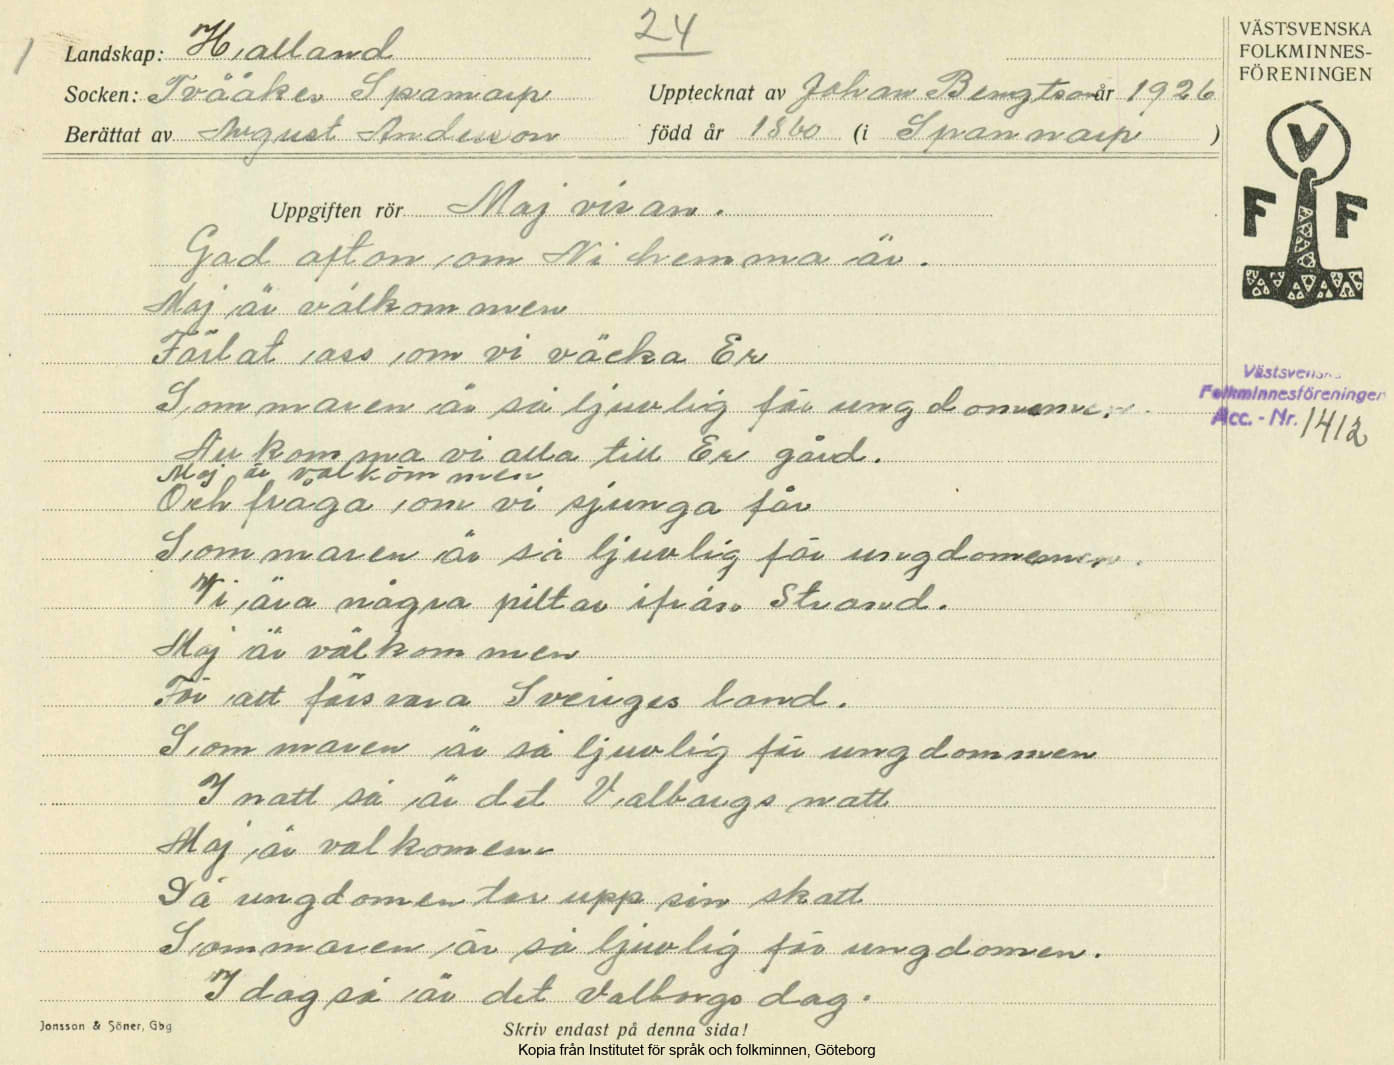 24
1
Landskap: Halland
Socken: Tvååker Spanarp
Upptecknat av Johan Bengtson år 1926
Berättat av August Anderson
född år 1860 (i Spannarp )
VÄSTSVENSKA
FOLKMINNES-
FÖRENINGEN
V
F F
Uppgiften rör Maj visan.
God afton om Ni hemma är.
Maj är välkommen
Förlåt oss om vi väcka Er
Sommaren är så ljuvlig för ungdommen.
Nu komma vi alla till Er gård.
Maj är välkommen
Och fråga om vi sjunga får
Sommaren är så ljuvlig för ungdommen.
Vi ära några piltar ifrån Strand.
Maj är välkommen
För att försvara Sveriges land.
Sommaren är så ljuvlig för ungdommen
I natt så är det Valbargs natt
Maj är valkomen
Då ungdomen tar upp sin skatt
Sommaren är så ljuvlig för ungdomen.
I dag så är det Valborgs dag.
Västsvenska
Folkminnesföreningen
Acc. - Nr. 1412
Jonsson & Söner, Gbg
Skriv endast på denna sida!
Kopia från Institutet för språk och folkminnen, Göteborg